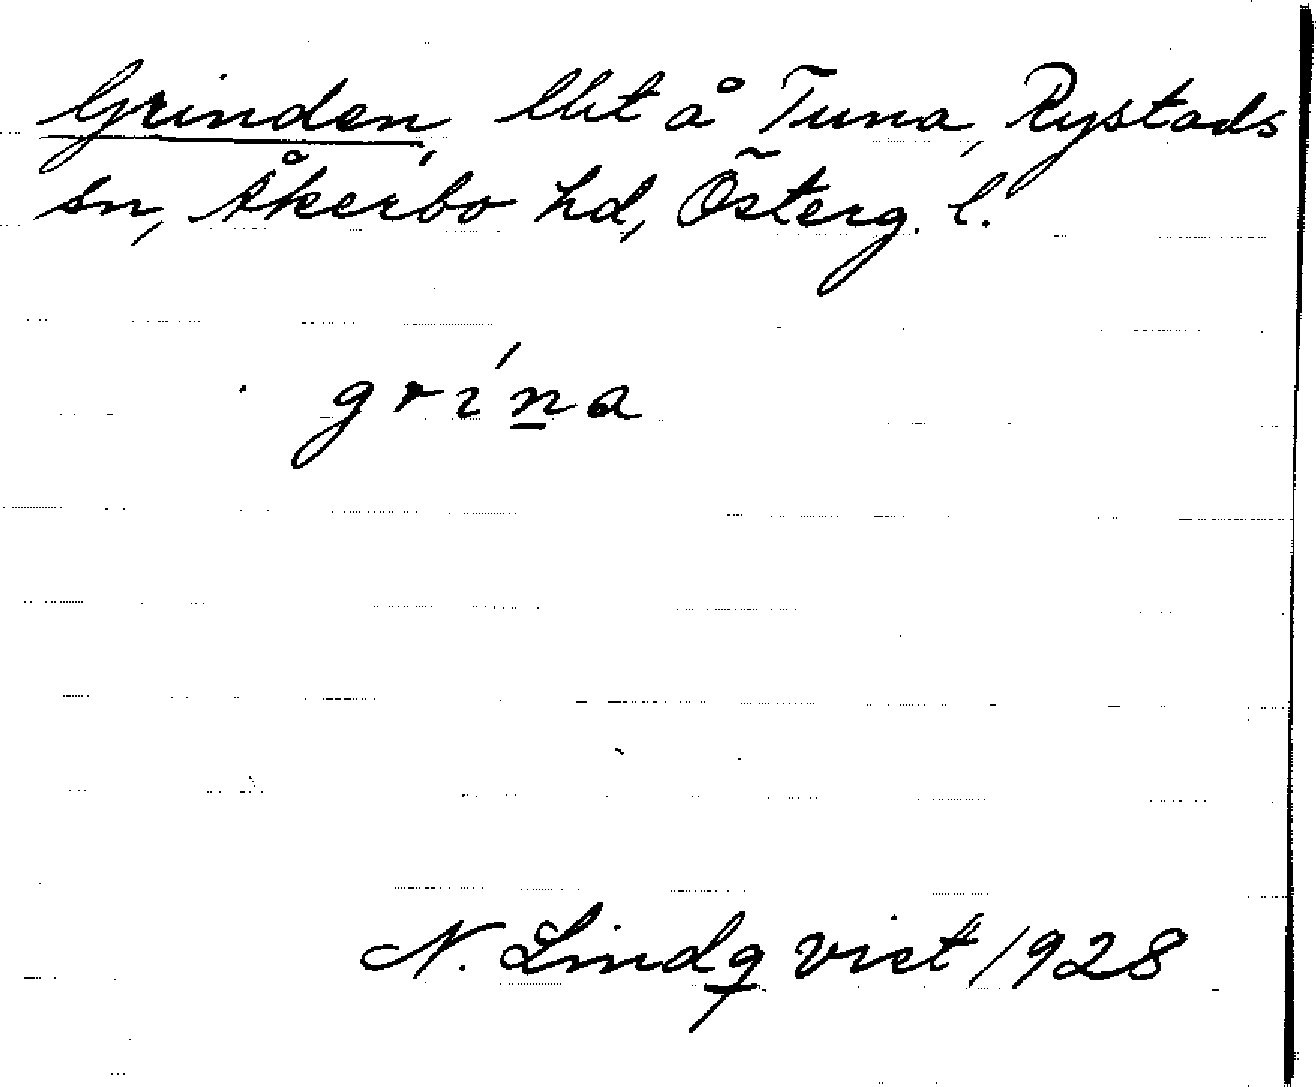 Grinden, lht å Tuna, Rystads
sn, Åkerbo hd, Österg. l.
grína
N. Lindqvist 1928